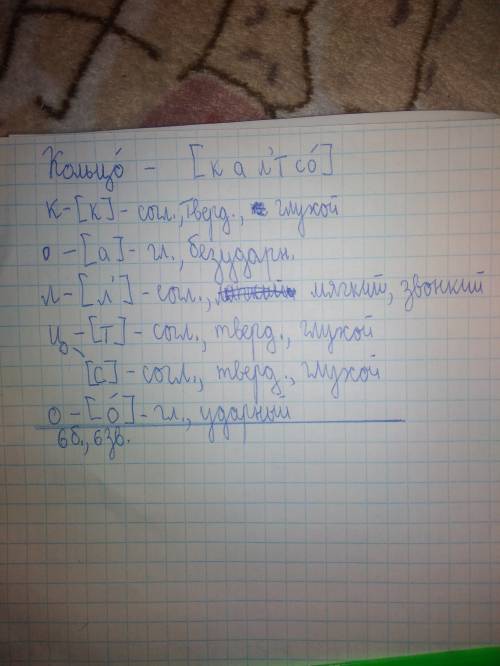 Кольцо́ - [к а л' т с о́]
К-[к]-согл., тверд., глухой
о-[а]-гл., безударн.
л-[л']-согл., мягкий, звонкий
ц-[т]-согл., тверд., глухой
[с]-согл., тверд., глухой
о-[о́]-гл., ударный
6б., 6зв.